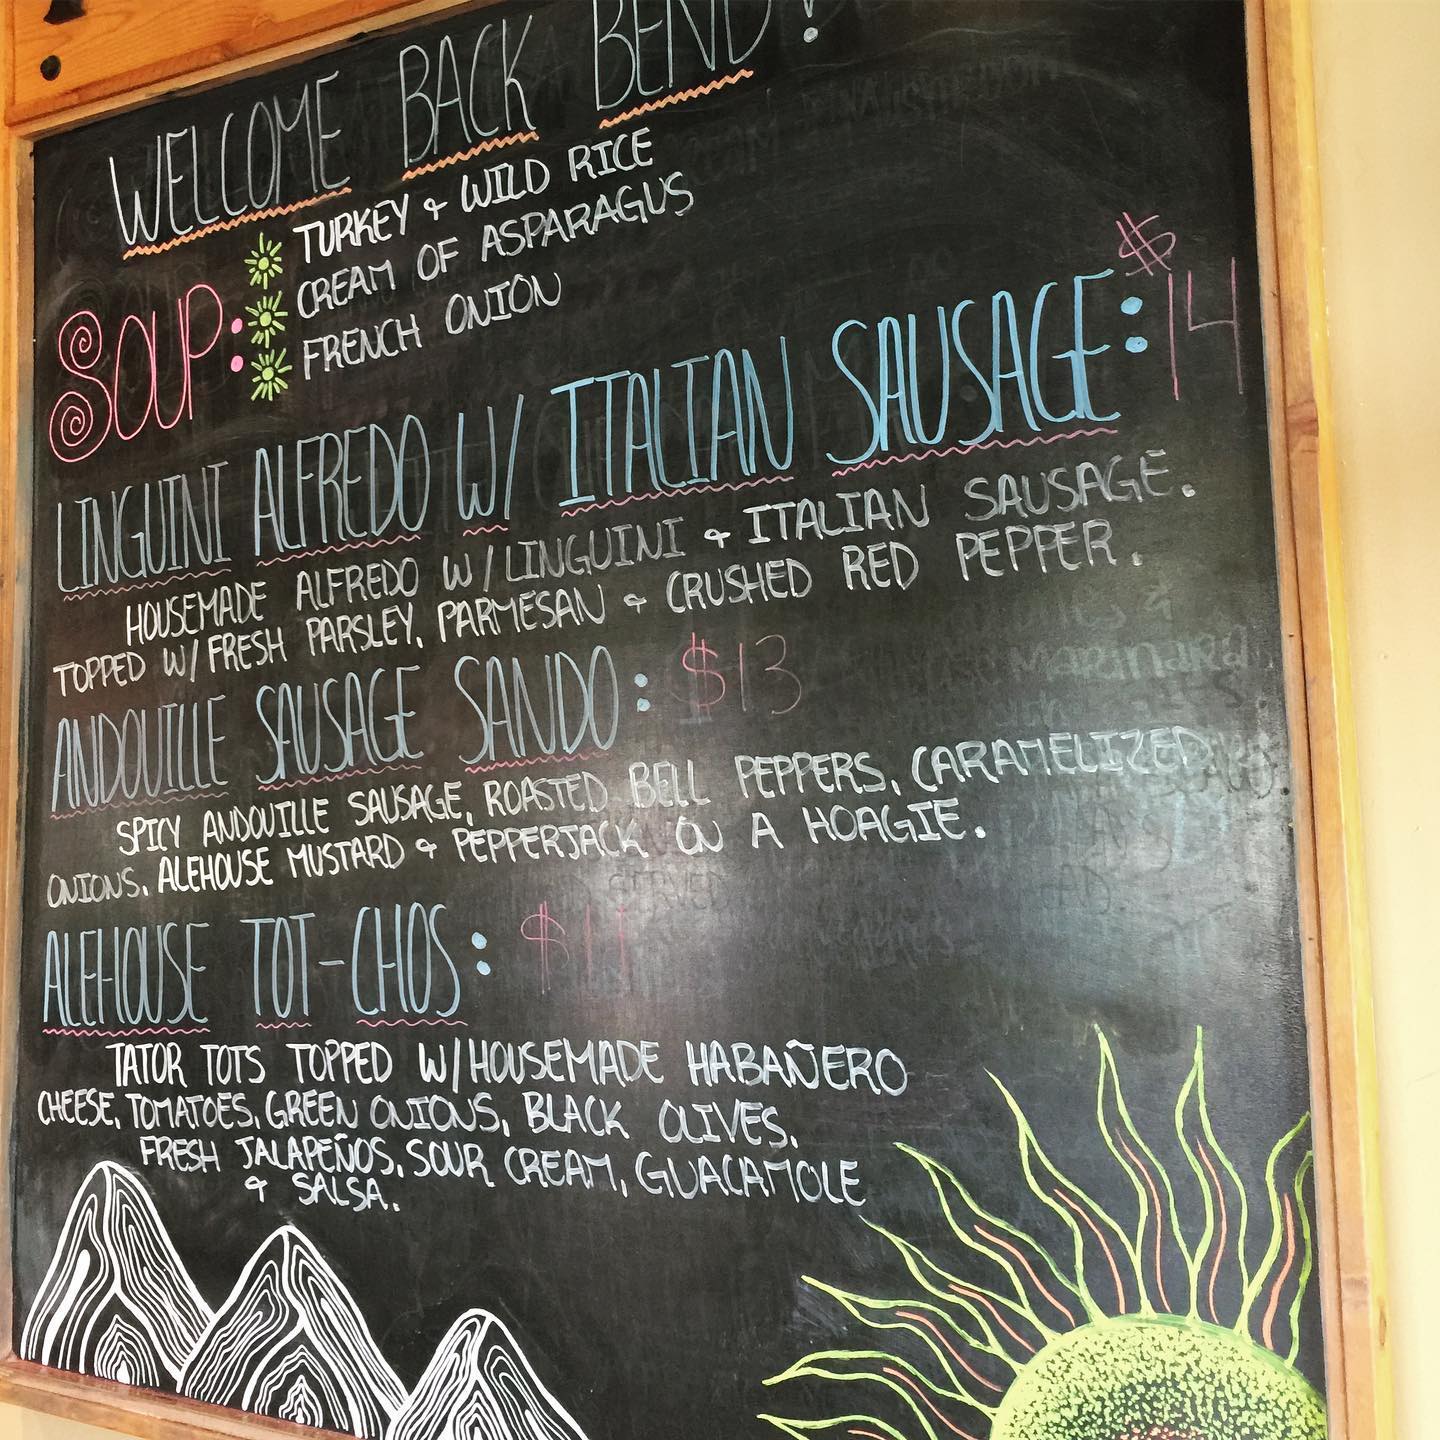 WELCOME BACK BEND!
SOUP:
TURKEY & WILD RICE
CREAM OF ASPARAGUS
FRENCH ONION
LINGUINI ALFREDO W/ ITALIAN SAUSAGE: $14
HOUSEMADE ALFREDO W/ LINGUINI & ITALIAN SAUSAGE.
TOPPED W/ FRESH PARSLEY, PARMESAN & CRUSHED RED PEPPER.
ANDOUILLE SAUSAGE SANDO: $13
SPICY ANDOUILLE SAUSAGE, ROASTED BELL PEPPERS, CARAMELIZED
ONIONS, ALEHOUSE MUSTARD & PEPPERJACK ON A HOAGIE.
ALEHOUSE TOT-CHOS: $11
TATOR TOTS TOPPED W/ HOUSEMADE HABAÑERO
CHEESE, TOMATOES, GREEN ONIONS, BLACK OLIVES,
FRESH JALAPEÑOS, SOUR CREAM, GUACAMOLE
& SALSA.